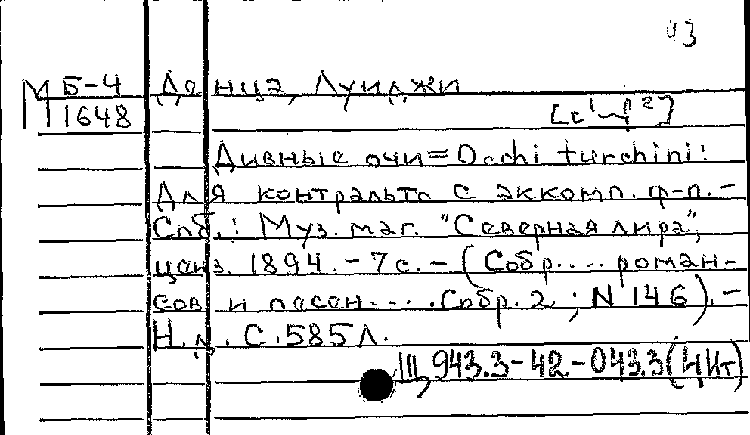 43
М Б-4 Данца, Луиджи
1648
[c¹-f²]
Дивные очи = Occhi turchini!
Для контральто с аккомп. ф-п. -
Спб.: Муз. маг. "Северная лира",
ценз. 1894. - 7 с. - (Собр.... роман-
сов и песен.... Собр. 2; N 146). -
Н.д. С.585Л.
Щ943.3-42.-043.3(4Ит)